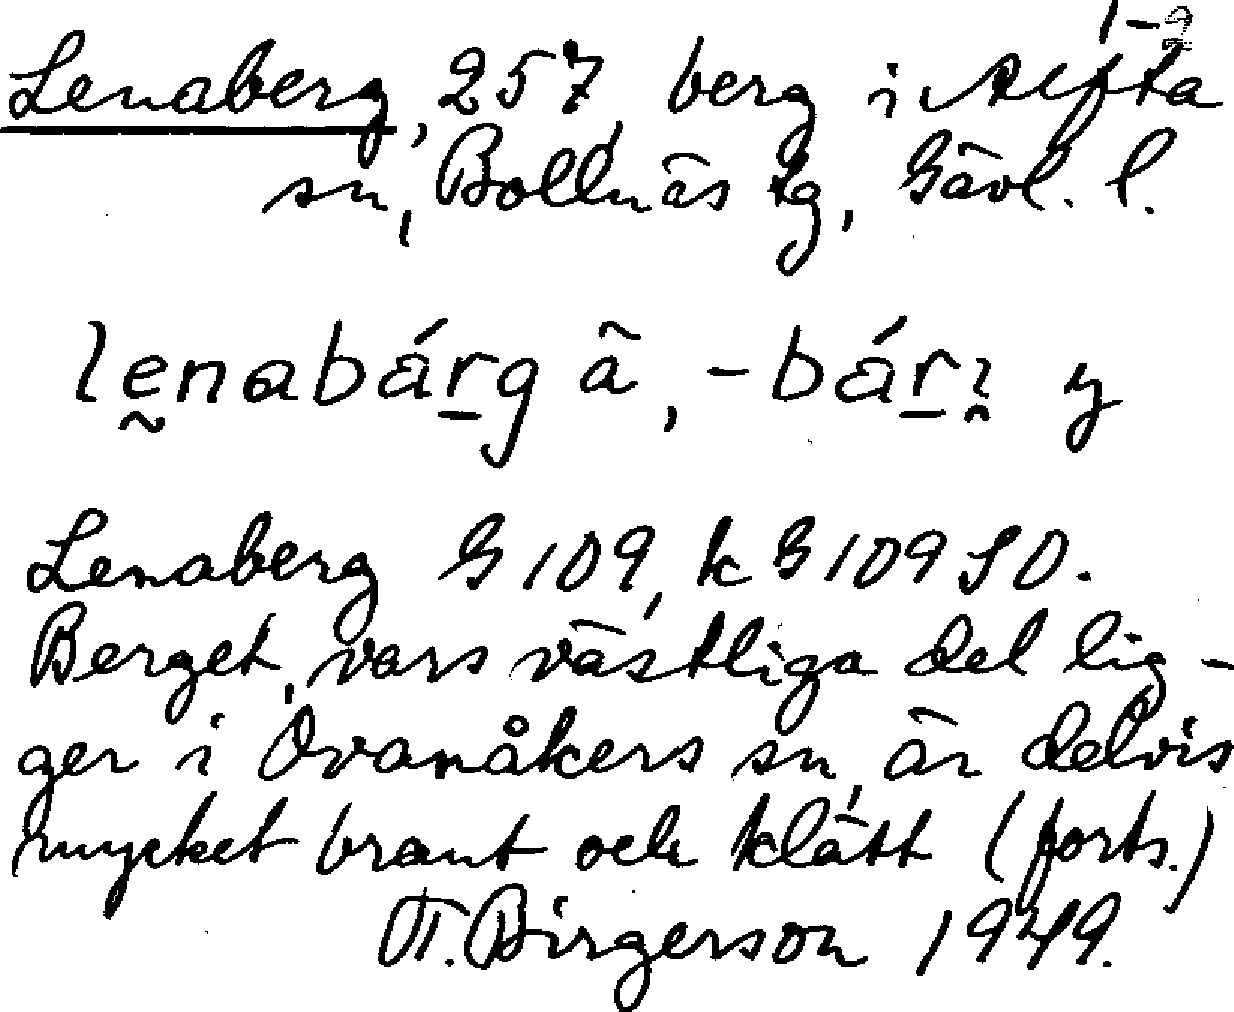 1-2
Lenaberg, 257 berg i Alfta
sn, Bollnäs tg, Gävl. l.
lḛnabárg ã, -bárı̯ y
Lenaberg G 109, k G 109 SO.
Berget, vars västliga del lig-
ger i Ovanåkers sn, är delvis
mycket brant och klätt (forts.)
T. Birgerson 1949.